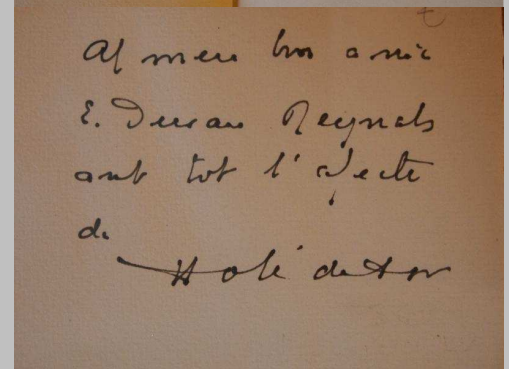 Al meu bon amic
E. Duran Reynals
amb tot l'afecte
de